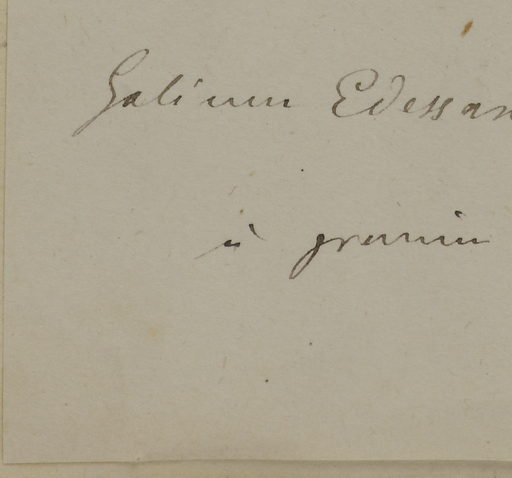 Galium Edessan
in gramin